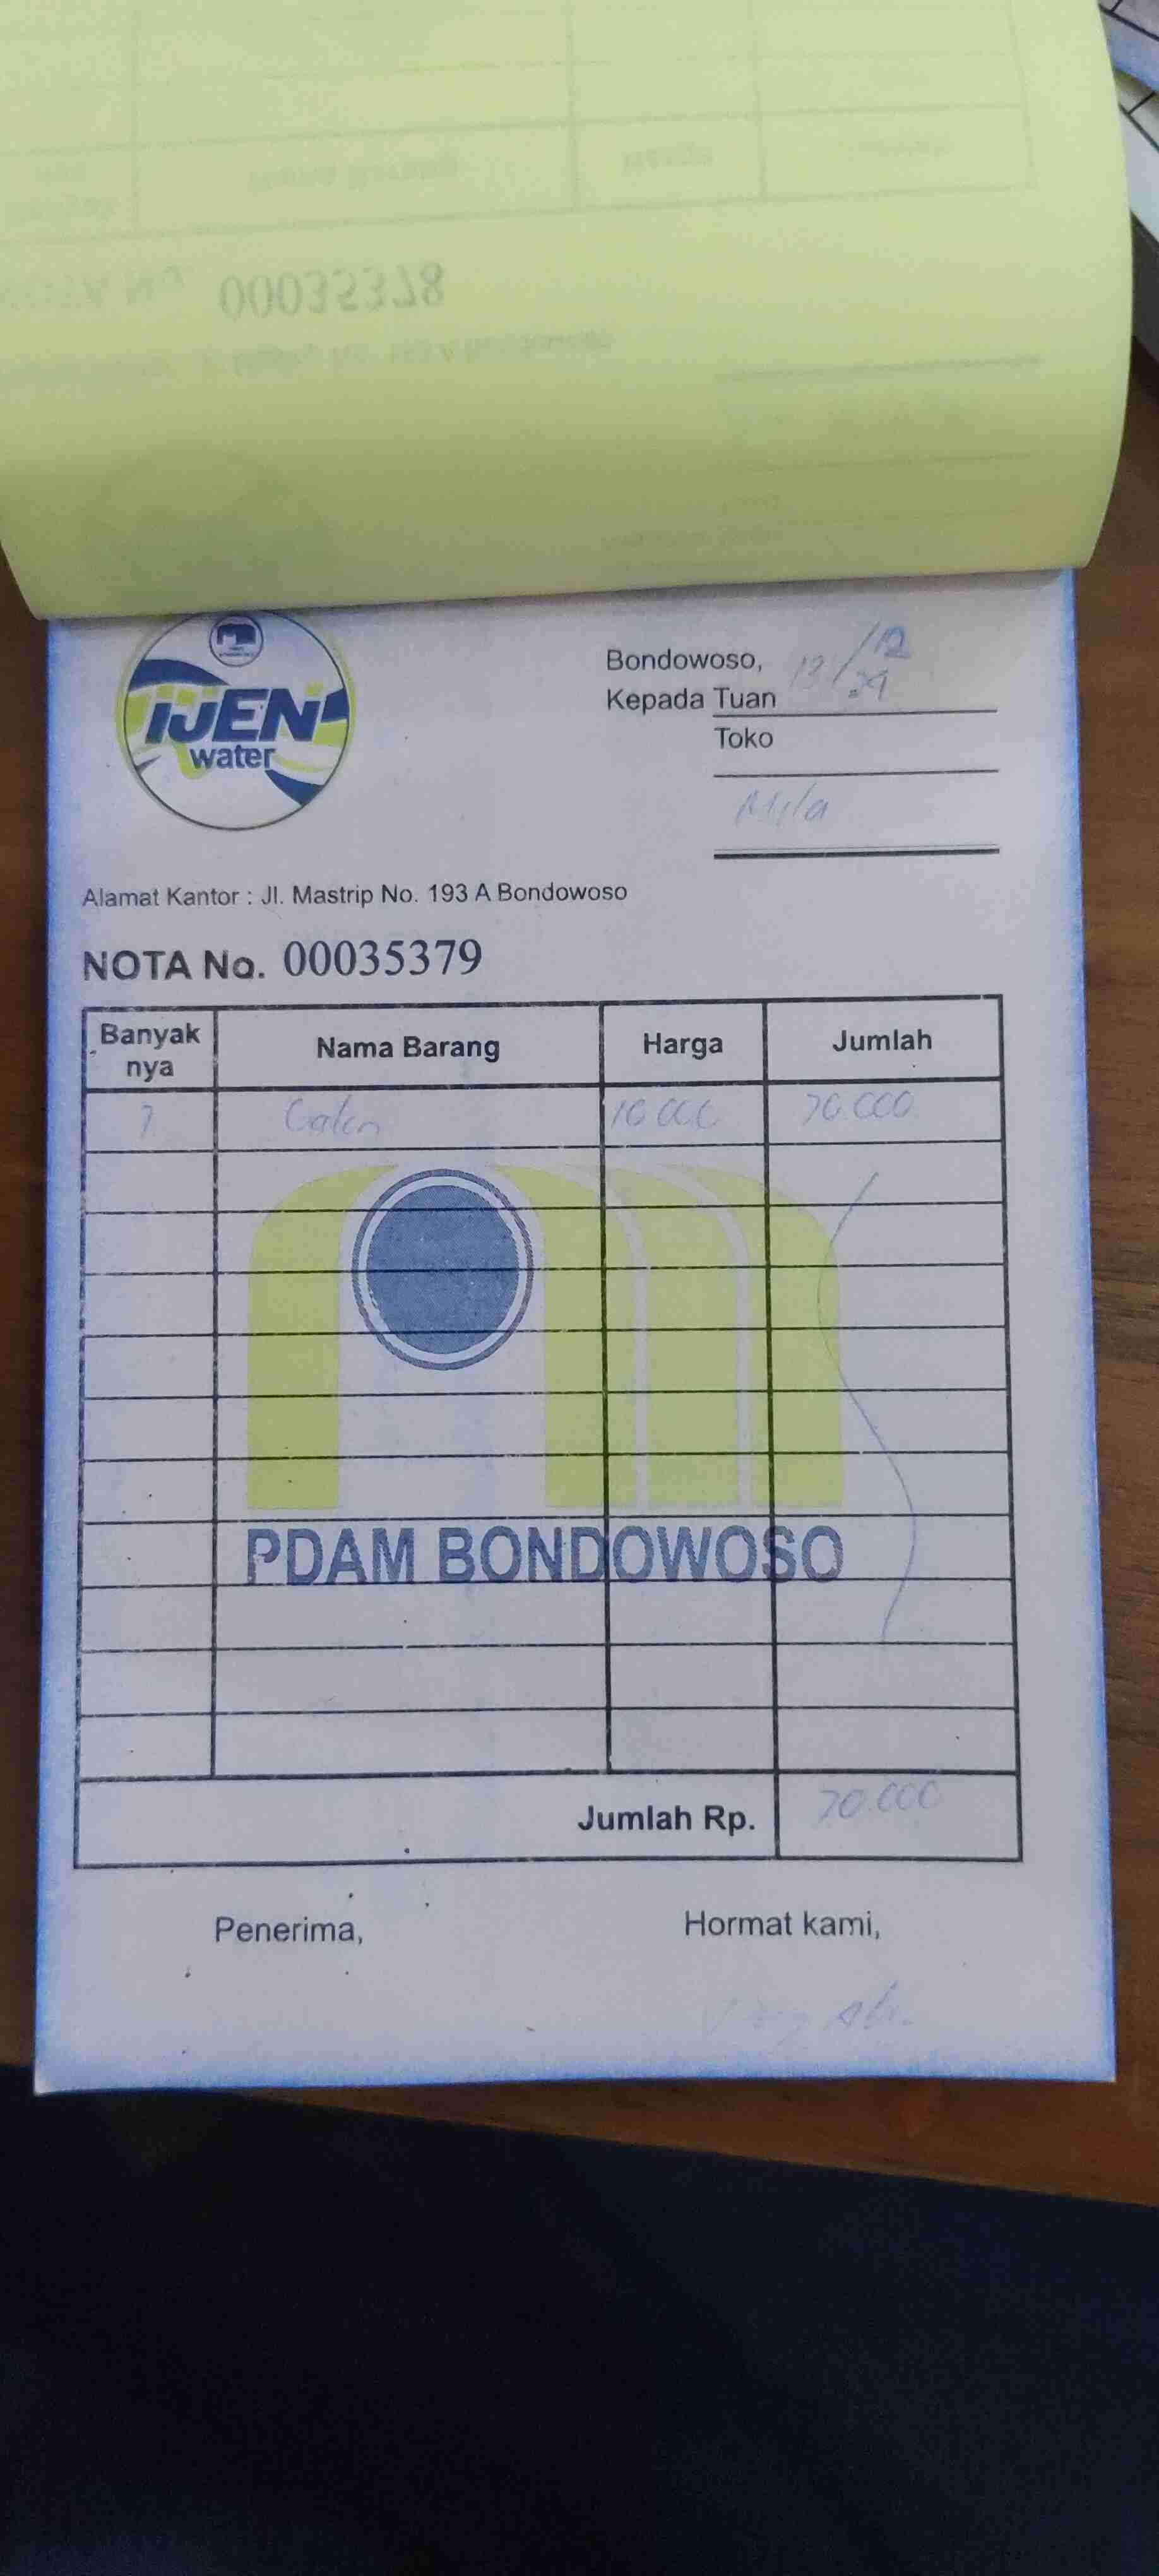 00035378
IJEN
water
Bondowoso, 13/12
Kepada Tuan
Toko
Alamat Kantor : Jl. Mastrip No. 193 A Bondowoso
NOTA No. 00035379
Banyak nya Nama Barang Harga Jumlah
7 Galon 10.000 70.000
PDAM BONDOWOSO
Jumlah Rp. 70.000
Penerima, Hormat kami,